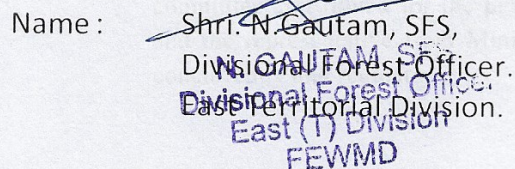 Name : Shri. N.Gautam, SFS,
Divisional Forest Officer.
East Territorial Division.
N. GAUTAM, SFS
Divisional Forest Officer
East (T) Division
FEWMD